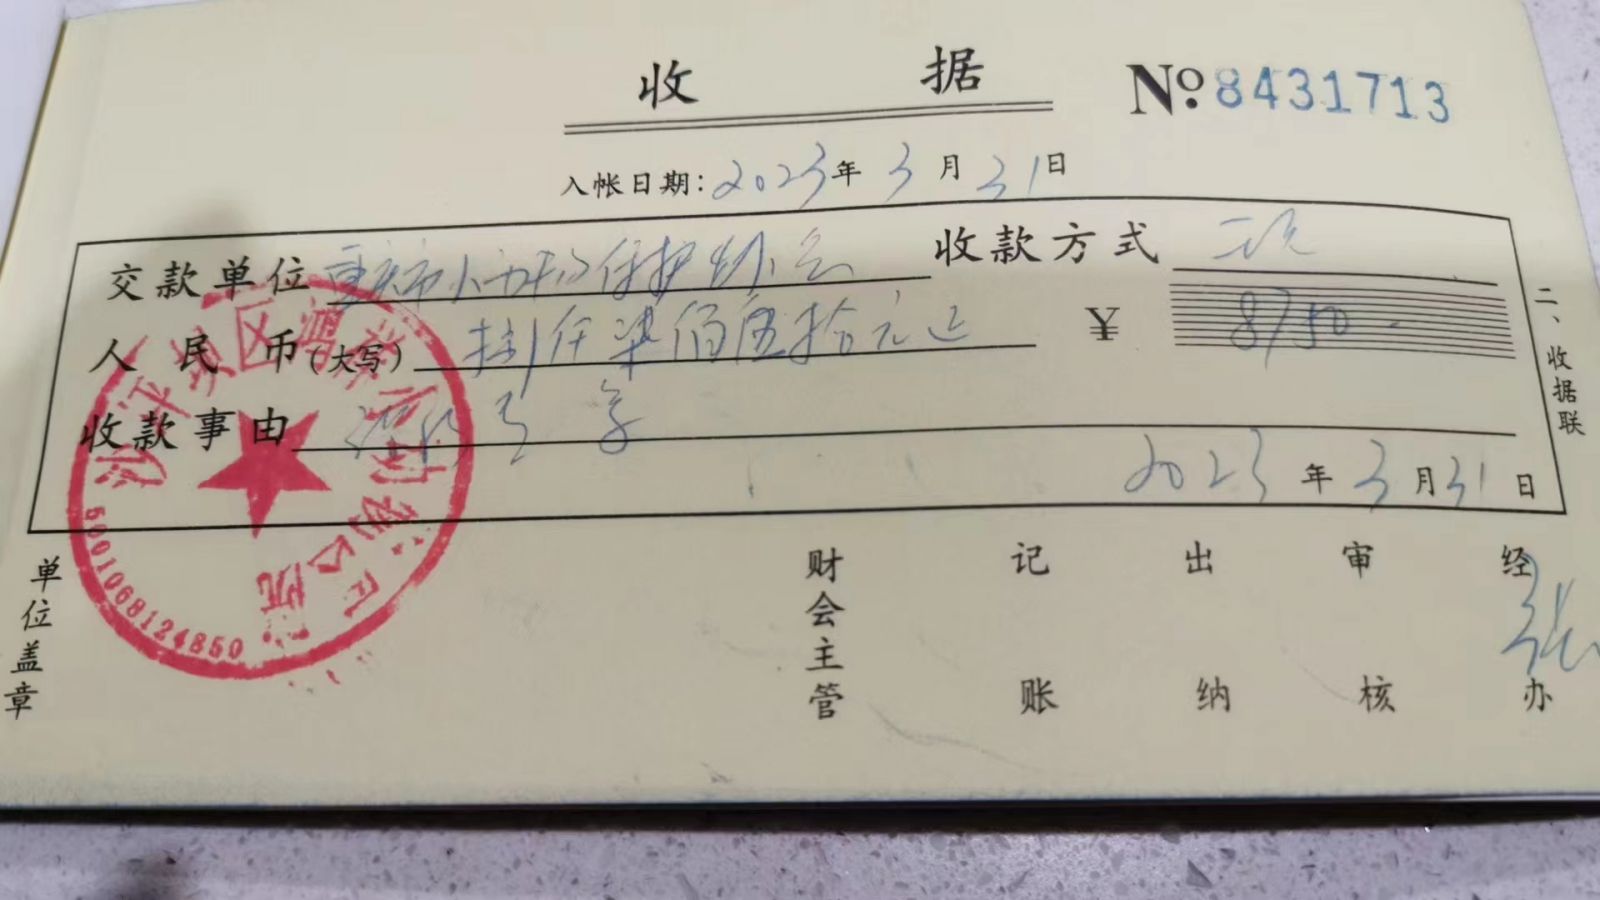 收据 №8431713
入帐日期：2023年3月31日
交款单位 重庆市小动物保护协会 收款方式
人民币（大写） 捌仟柒佰伍拾元正 ¥ 8750.
收款事由
2023年3月31日
二、收据联
单位盖章 财会主管 记账 出纳 审核 经办 张
沙 区 院
5001068124850